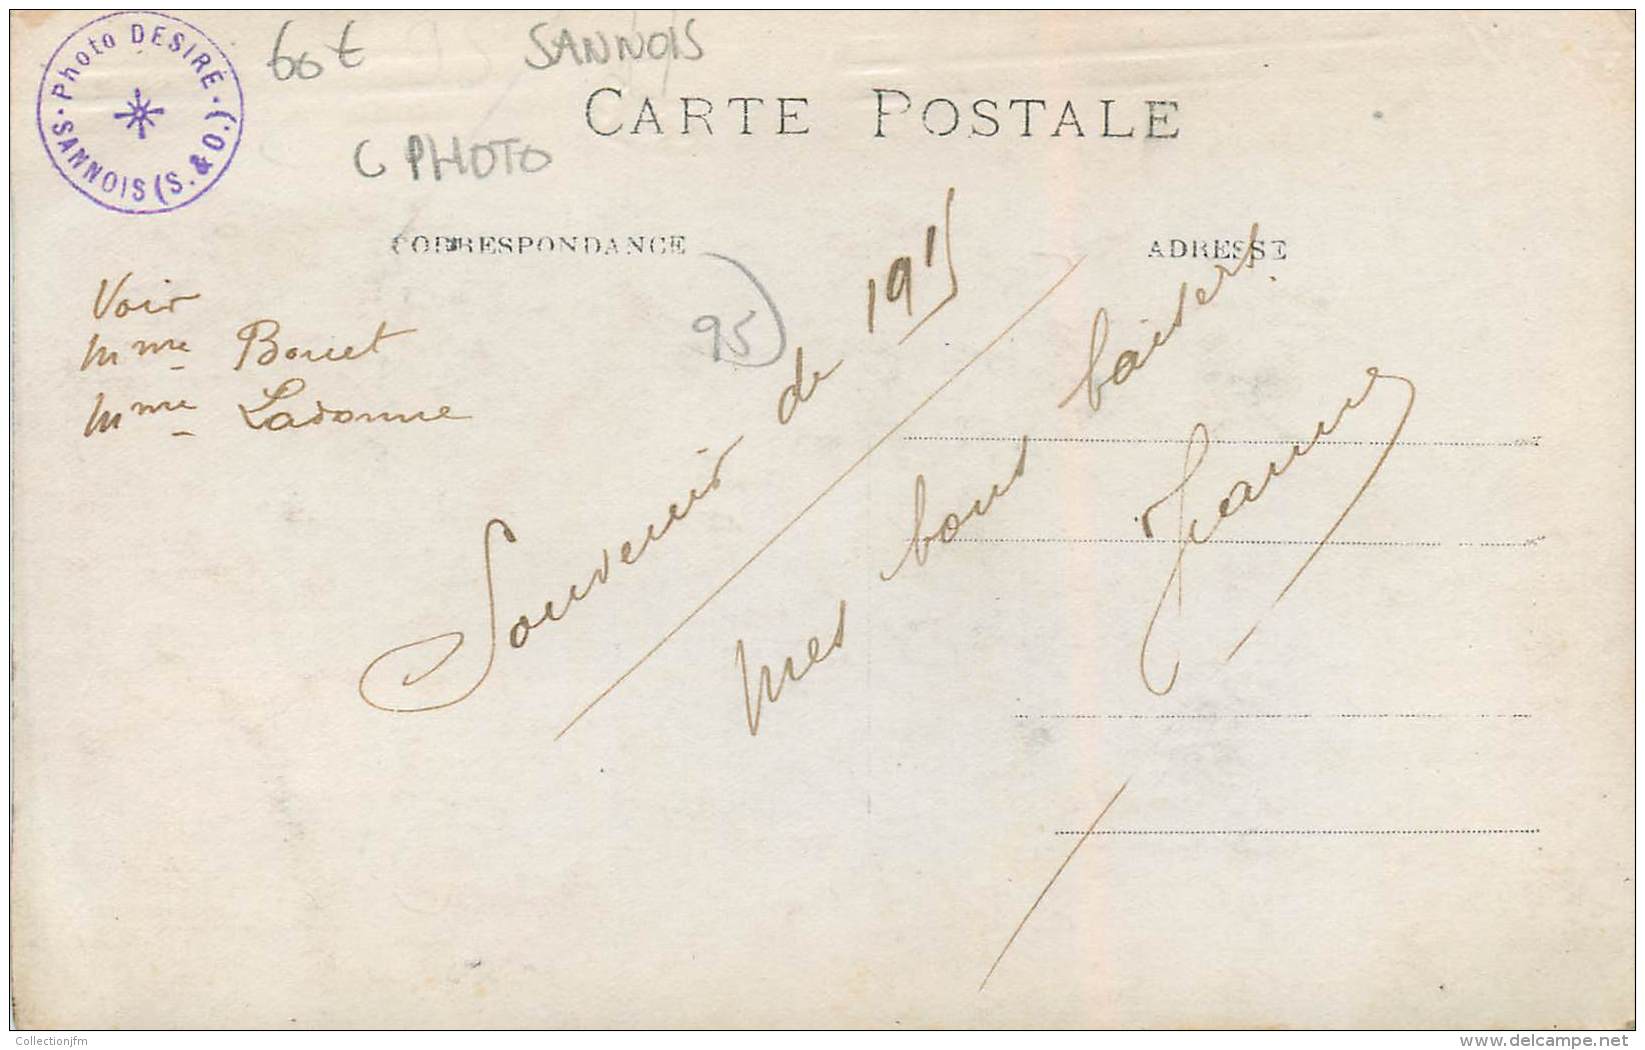 Photo DESIRÉ
SANNOIS (S. & O.)
60 €
SANNOIS
C PHOTO
CARTE POSTALE
CORRESPONDANCE
ADRESSE
95
Voir
Mme Bouet
Mme Ladonne
Souvenir de 1915
Mes bons baisers
Jeanne
Collectionjfm
www.delcampe.net